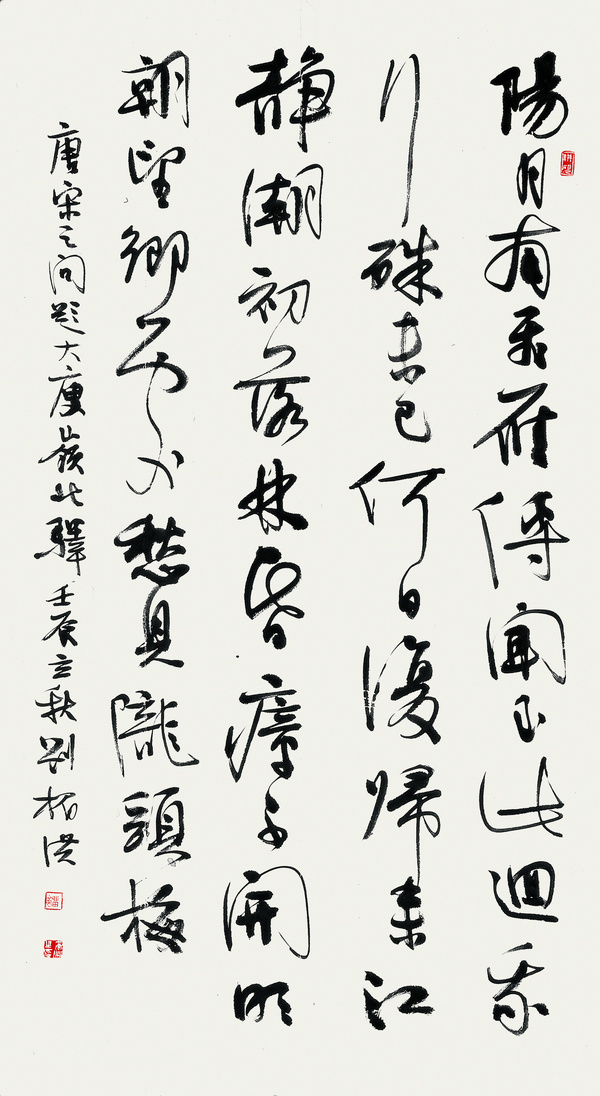 陽月南飛雁傳聞至此迴我
行殊未已何日復歸来江
静潮初落林昏瘴不開明
朝望鄉處愁見隴頭梅
唐宋之问題大庾嶺北驛壬辰立秋劉洪